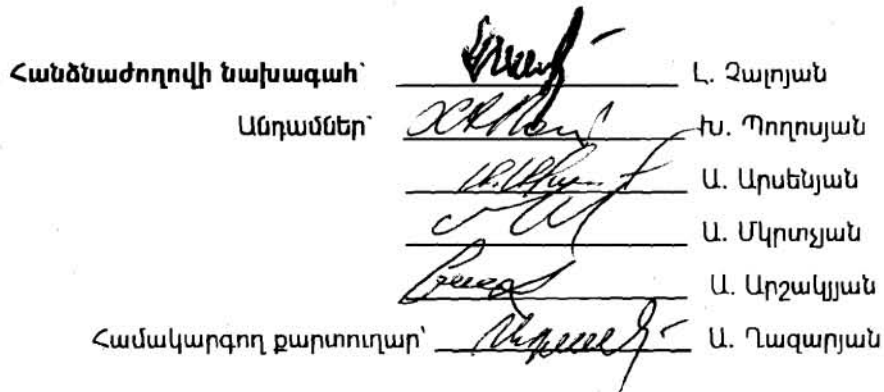 Հանձնաժողովի նախագահ՝ Լ. Չալոյան
Անդամներ՝ Խ. Պողոսյան
Ա. Արսենյան
Ա. Մկրտչյան
Ա. Արշակյան
Համակարգող քարտուղար՝ Ա. Ղազարյան